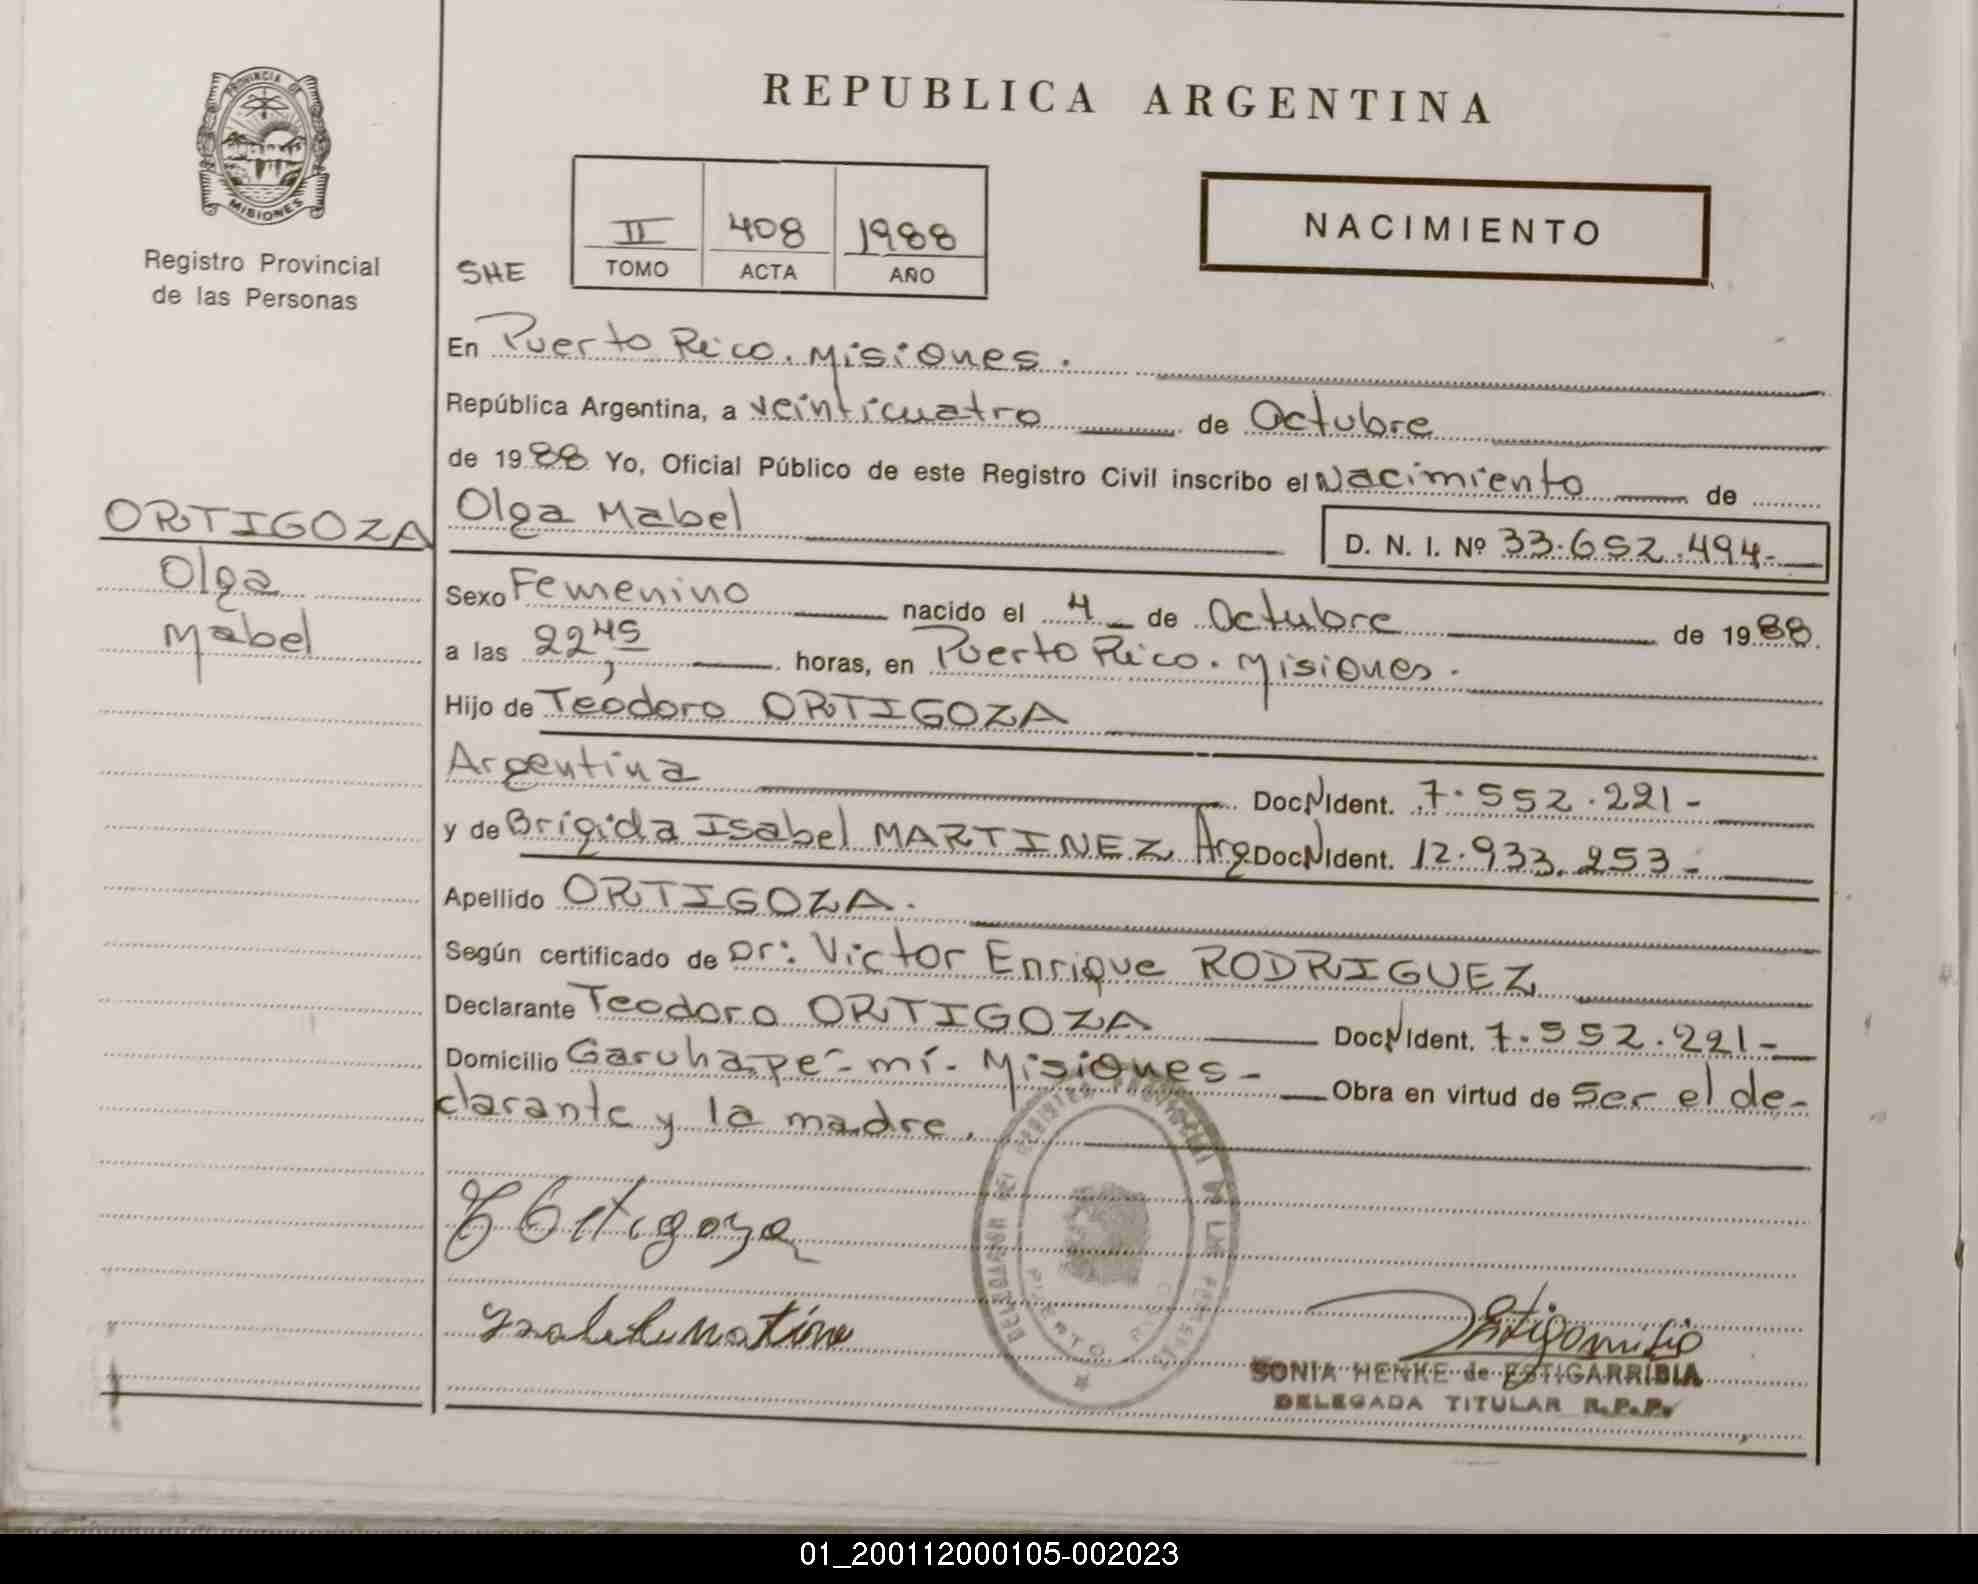 REPUBLICA ARGENTINA
PROVINCIA DE
MISIONES
Registro Provincial
de las Personas
II 408 1988
TOMO ACTA AÑO
NACIMIENTO
SHE
En Puerto Rico. Misiones.
República Argentina, a veinticuatro de Octubre
de 1988 Yo, Oficial Público de este Registro Civil inscribo el Nacimiento de
Olga Mabel
D. N. I. Nº 33.652.494-
ORTIGOZA
Olga
Mabel
Sexo Femenino nacido el 4 de Octubre de 1988.
a las 22,45 horas, en Puerto Rico. Misiones.
Hijo de Teodoro ORTIGOZA
Argentina DocNIdent. 7.552.221-
y de Brígida Isabel MARTINEZ Arg DocNIdent. 12.933.253-
Apellido ORTIGOZA.
Según certificado de Dr: Victor Enrique RODRIGUEZ
Declarante Teodoro ORTIGOZA DocNIdent. 7.552.221-
Domicilio Garuhapé-mí- Misiones- Obra en virtud de Ser el de-
clarante y la madre.
Ortigoza
PUERTO RICO
SONIA HENKE de ESTIGARRIBIA
DELEGADA TITULAR R.P.P.
01_200112000105-002023